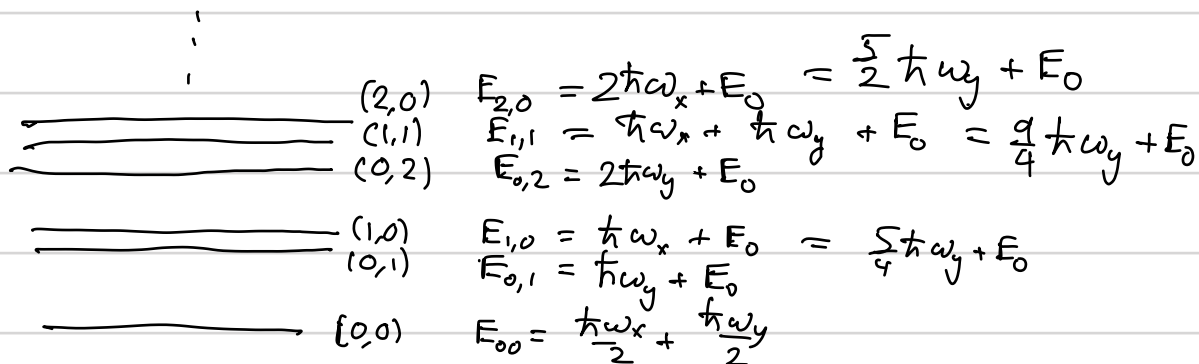 (2,0) E_{2,0} = 2ℏω_x + E_0 = 5/2 ℏω_y + E_0
(1,1) E_{1,1} = ℏω_x + ℏω_y + E_0 = 9/4 ℏω_y + E_0
(0,2) E_{0,2} = 2ℏω_y + E_0
(1,0) E_{1,0} = ℏω_x + E_0 = 5/4 ℏω_y + E_0
(0,1) E_{0,1} = ℏω_y + E_0
(0,0) E_{00} = ℏω_x/2 + ℏω_y/2